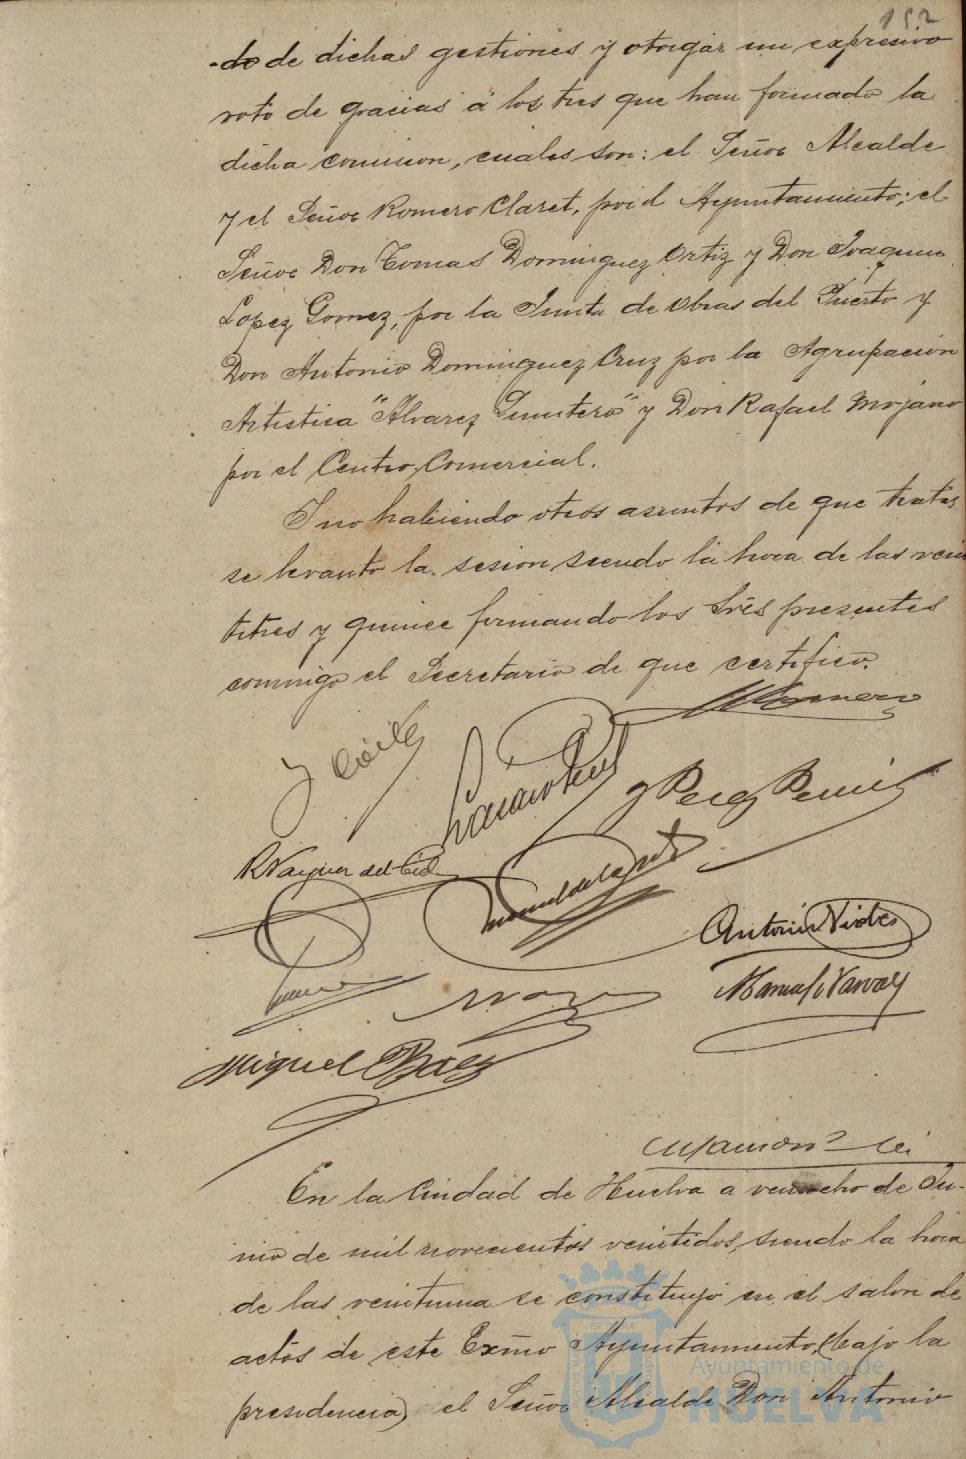 152
-do de dichas gestiones y otorgar un expresivo
voto de gracias á los tres que han formado la
dicha comision, cuales son: el Señor Alcalde
y el Señor Romero Claret, por el Ayuntamiento; el
Señor Don Tomas Dominguez Ortiz y Don Joaquin
Lopez Gomez, por la Junta de Obras del Puerto y
Don Antonio Dominguez Cruz por la Agrupacion
Artistica "Alvarez Quintero" y Don Rafael Mojarro
por el Centro Comercial.
Y no habiendo otros asuntos de que tratar
se levanto la sesion siendo la hora de las vein
titres y quince firmando los Srēs presentes
conmigo el Secretario de que certifico.
y Perez
R Vazquez del Cid
Antonio
Manuel Narvaez
Miguel Baez
En la Ciudad de Huelva a veintiocho de Ju-
nio de mil novecientos veintidos, siendo la hora
de las veintiuna se constituyó en el salon de
actos de este Exm̃o Ayuntamiento, (bajo la
presidencia) el Señor Alcalde Don Antonio
Ayuntamiento de
HUELVA